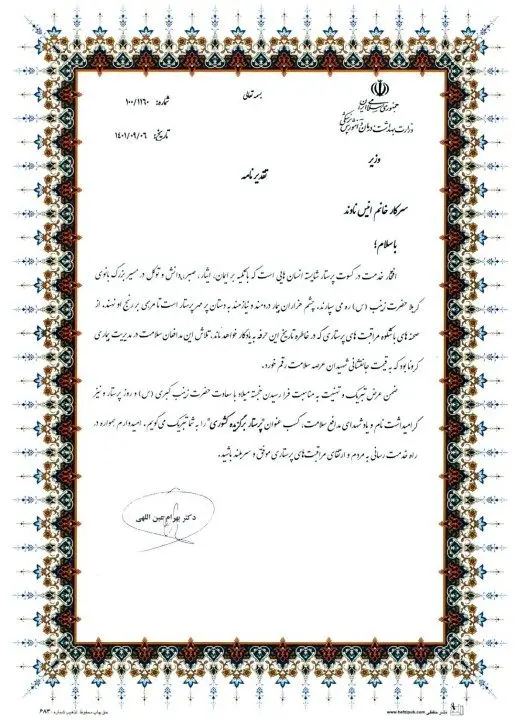 بسمه تعالی
شماره: ۱۰۰/۱۱۶۰
تاریخ: ۱۴۰۱/۰۹/۰۶
جمهوری اسلامی ایران
وزارت بهداشت، درمان و آموزش پزشکی
وزیر
تقدیرنامه
سرکار خانم انیس ناوند
باسلام؛
افتخار خدمت در کسوت پرستار شایسته انسان هایی است که با تکیه بر ایمان، ایثار، صبر، دانش و توکل در مسیر بزرگ بانوی
کربلا حضرت زینب (س) ره می سپارند. چشم هزاران بیمار دردمند و نیازمند به دستان پر مهر پرستار است تا مرهمی بر رنج او نهند. از
صحنه های باشکوه مراقبت های پرستاری که در خاطره تاریخ این حرفه به یادگار خواهد ماند، تلاش این مدافعان سلامت در مدیریت بیماری
کرونا بود که به قیمت جانفشانی شهیدان عرصه سلامت رقم خورد.
ضمن عرض تبریک و تهنیت به مناسبت فرا رسیدن خجسته میلاد با سعادت حضرت زینب کبری (س) و روز پرستار و نیز
گرامیداشت نام و یاد شهدای مدافع سلامت، کسب عنوان "پرستار برگزیده کشوری" را به شما تبریک می گویم. امیدوارم همواره در
راه خدمت رسانی به مردم و ارتقای مراقبت های پرستاری موفق و سربلند باشید.
دکتر بهرام عین اللهی
حق چاپ محفوظ تذهیب شماره: ۶۸۳
www.hafdipub.com